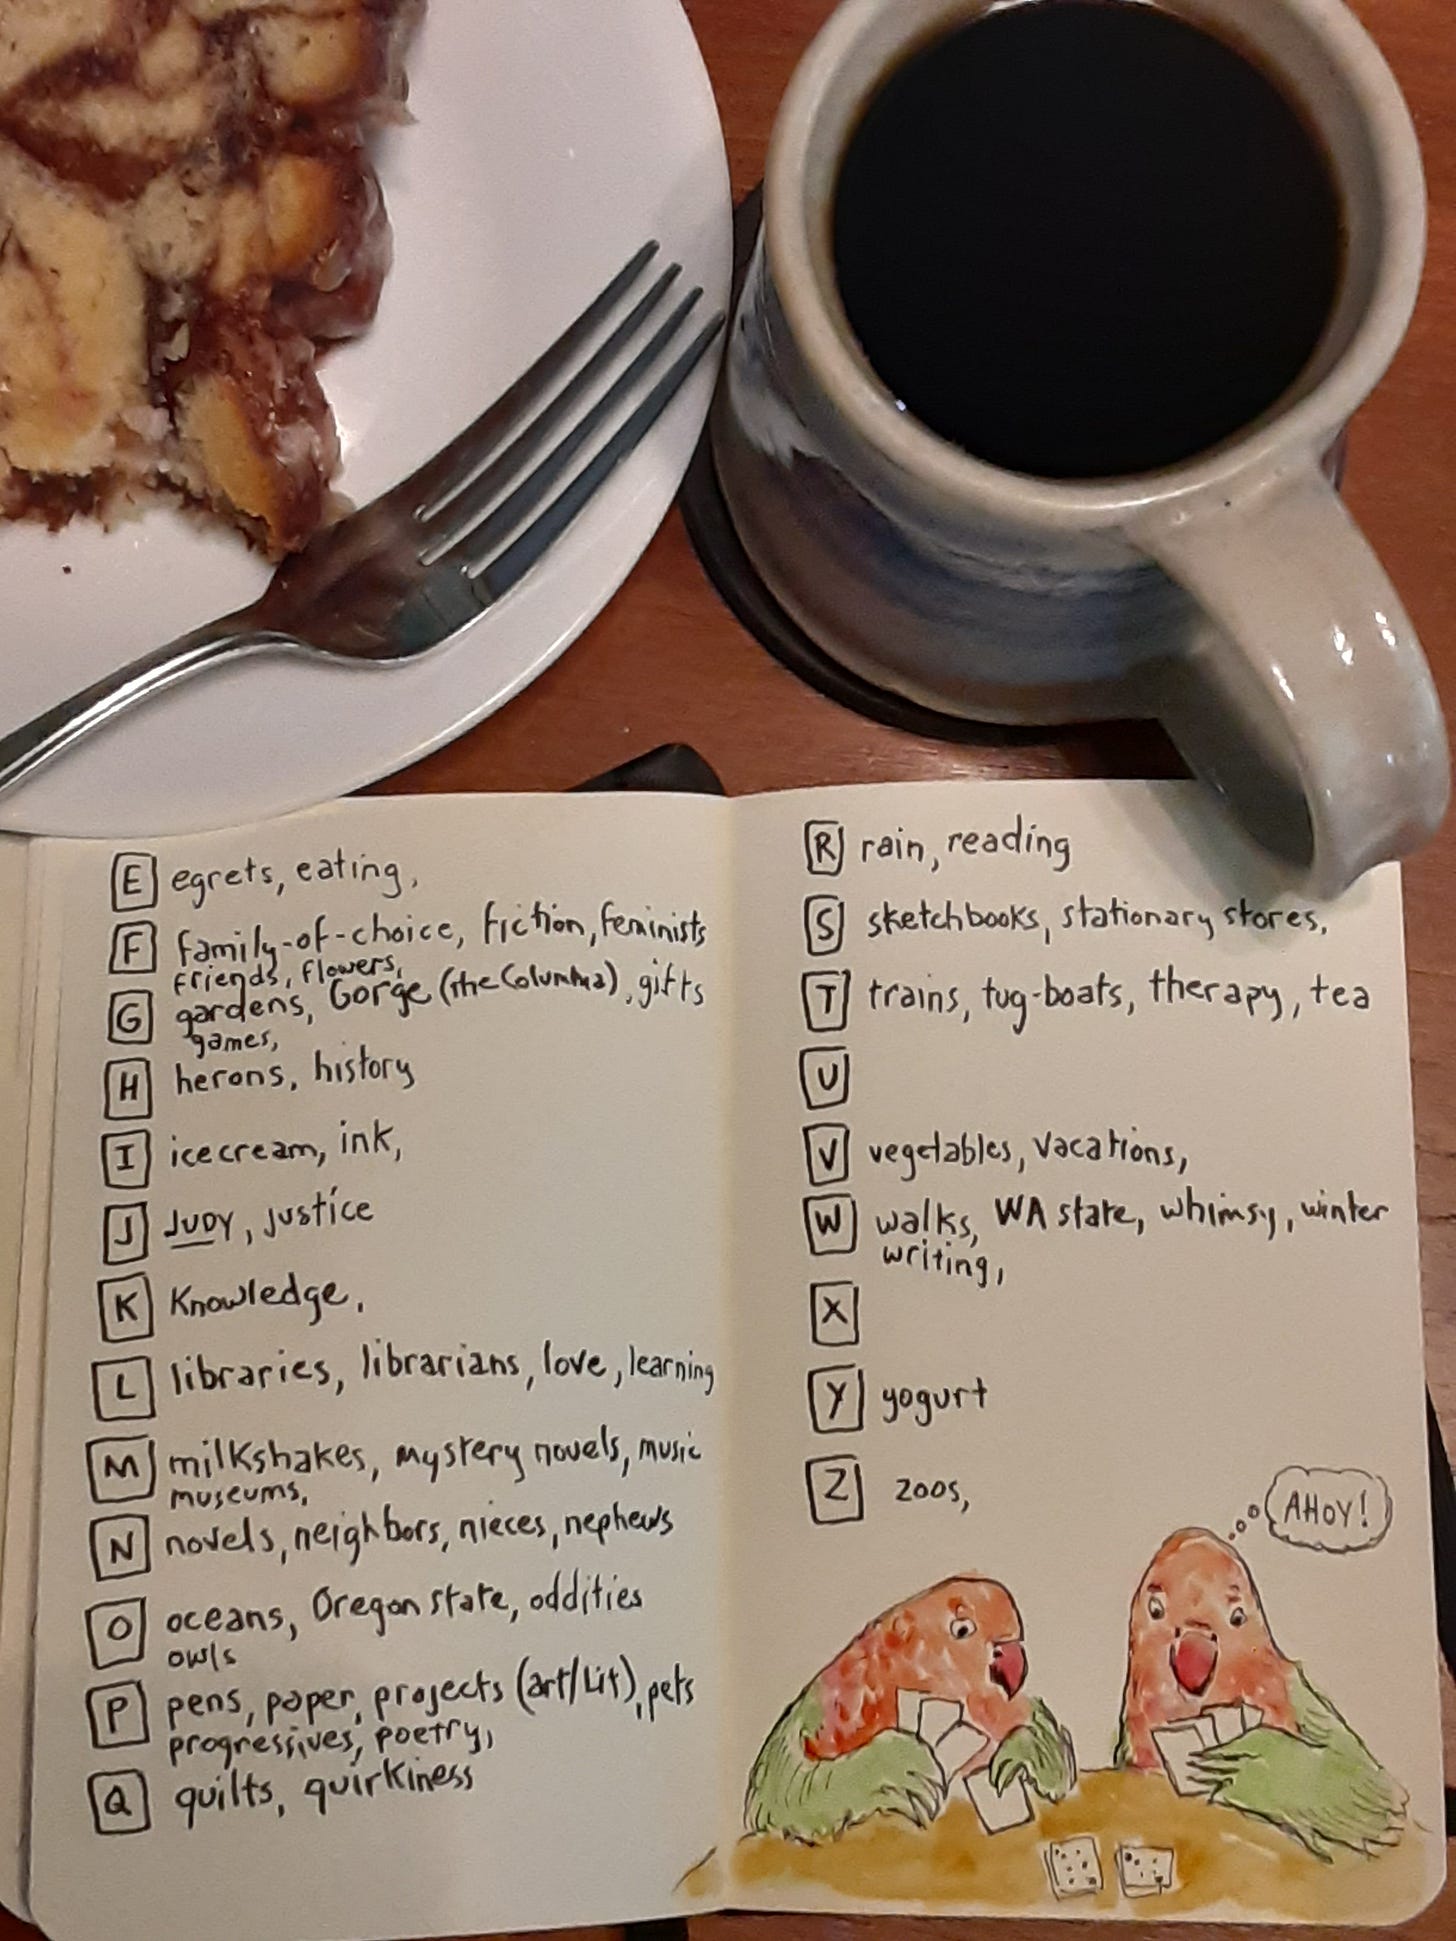 E egrets, eating,
F family-of-choice, fiction, feminists
friends, flowers,
G gardens, Gorge (the Columbia), gifts
games,
H herons, history
I icecream, ink,
J JUDY, justice
K Knowledge,
L libraries, librarians, love, learning
M milkshakes, mystery novels, music
museums,
N novels, neighbors, nieces, nephews
O oceans, Oregon state, oddities
owls
P pens, paper, projects (art/Lit), pets
progressives, poetry,
Q quilts, quirkiness
R rain, reading
S sketchbooks, stationary stores,
T trains, tug-boats, therapy, tea
U
V vegetables, vacations,
W walks, WA state, whimsy, winter
writing,
X
Y yogurt
Z zoos,
AHOY!